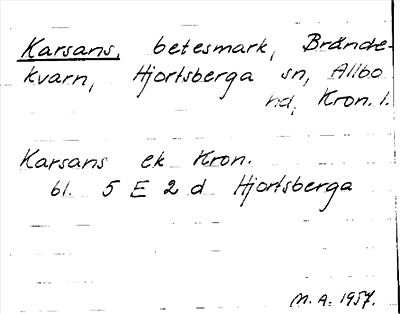 Karsans, betesmark, Brände-
kvarn, Hjortsberga sn, Allbo
hd, Kron. l.
Karsans ek Kron.
bl. 5 E 2 d Hjortsberga
M. A. 1957.